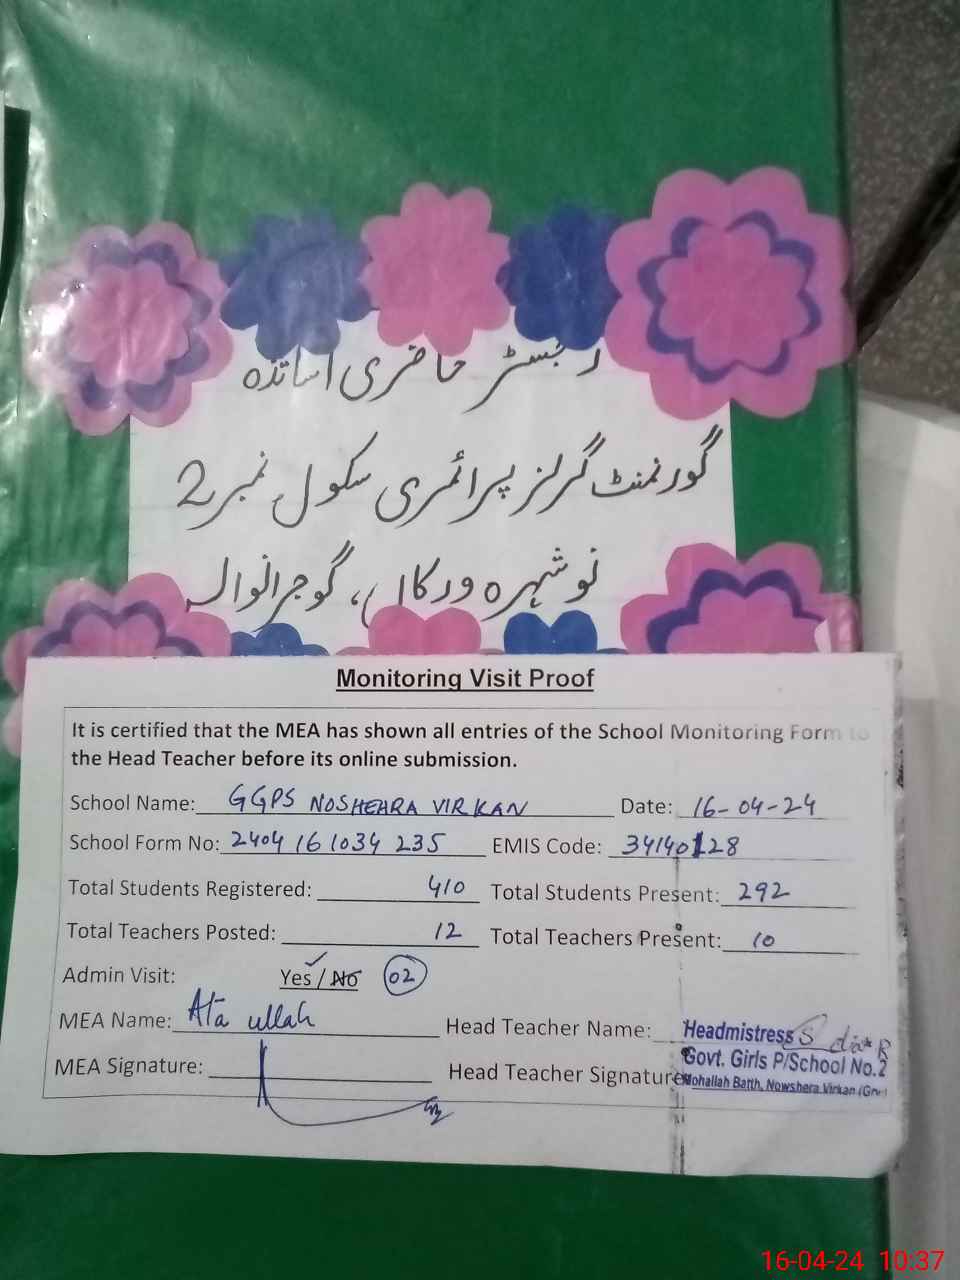 رجسٹر حاضری اساتذہ
گورنمنٹ گرلز پرائمری سکول نمبر 2
نوشہرہ ورکاں، گوجرانوالہ
Monitoring Visit Proof
It is certified that the MEA has shown all entries of the School Monitoring Form to
the Head Teacher before its online submission.
School Name: GGPS NOSHEHRA VIRKAN Date: 16-04-24
School Form No: 2404 16 1034 235 EMIS Code: 34140128
Total Students Registered: 410 Total Students Present: 292
Total Teachers Posted: 12 Total Teachers Present: 10
Admin Visit: Yes / No 02
MEA Name: Ata ullah Head Teacher Name: Headmistress
MEA Signature: Head Teacher Signature Govt. Girls P/School No.2
Mohallah Batth, Nowshera Virkan (Grw)
16-04-24 10:37